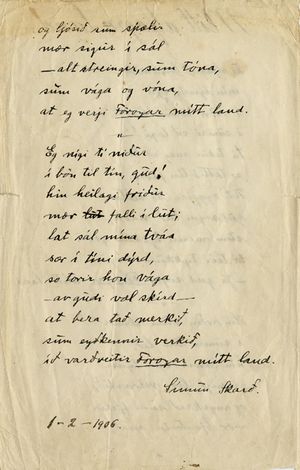 og ljósið sum spælir
mær sigur í sál
—alt streingir, sum tóna,
sum vága og vóna,
at eg verji Føroyar mítt land.
"
Eg nígi tí niður
í bøn til tín, guð!
hin heilagi friður
mær lut falli í lut;
lat sál mína tváa
sær í tíni dýrd,
so torir hon vága
—av gudi væl skírd—
at bera tað merkið,
sum eyðkennir verkið,
ið varðveitir Føroyar mítt land.
Símun Skarð.
1-2-1906.